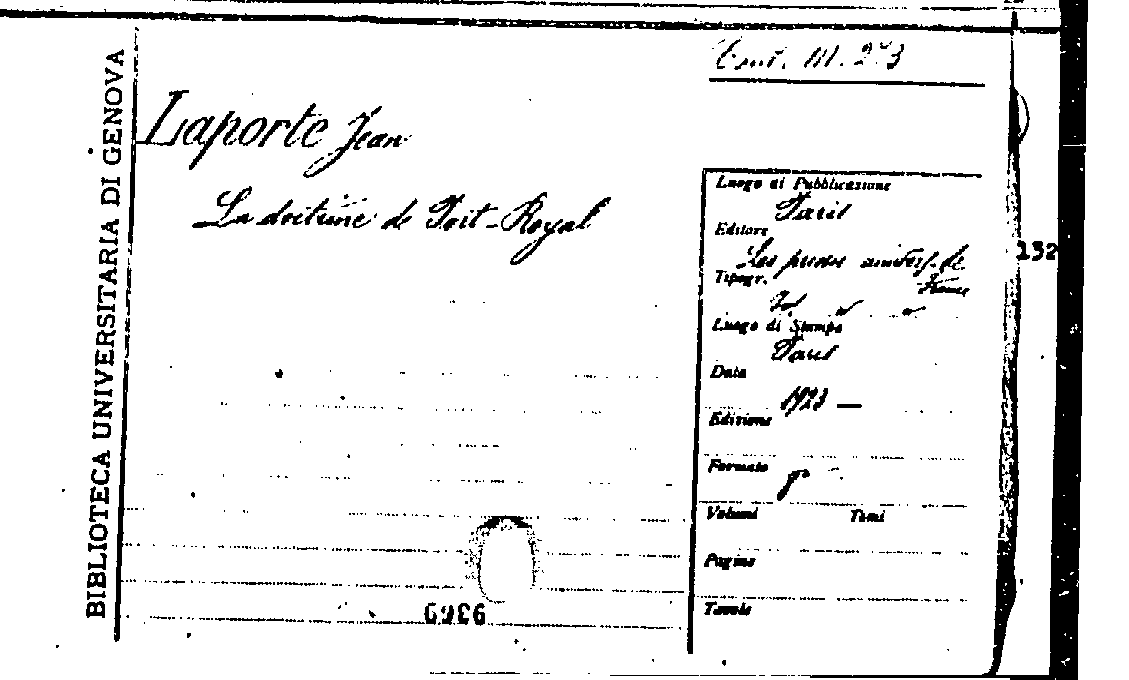 BIBLIOTECA UNIVERSITARIA DI GENOVA
Cont. III. 273
Laporte Jean
La doctrine de Port-Royal
Luogo di Pubblicazione
Paris
Editore
Les presses univers. de
France
Tipogr.
Luogo di Stampa
Paris
Data
1923 —
Edizione
Formato
8°
Volumi Tomi
Pagine
Tavole
132